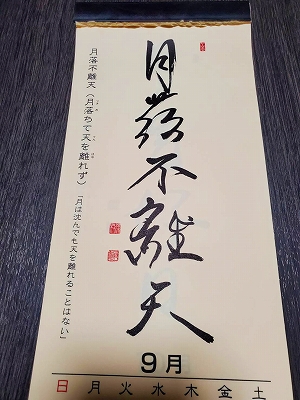 月落不離天
月落不離天（月落ちて天を離れず）「月は沈んでも天を離れることはない」
9月
日 月 火 水 木 金 土